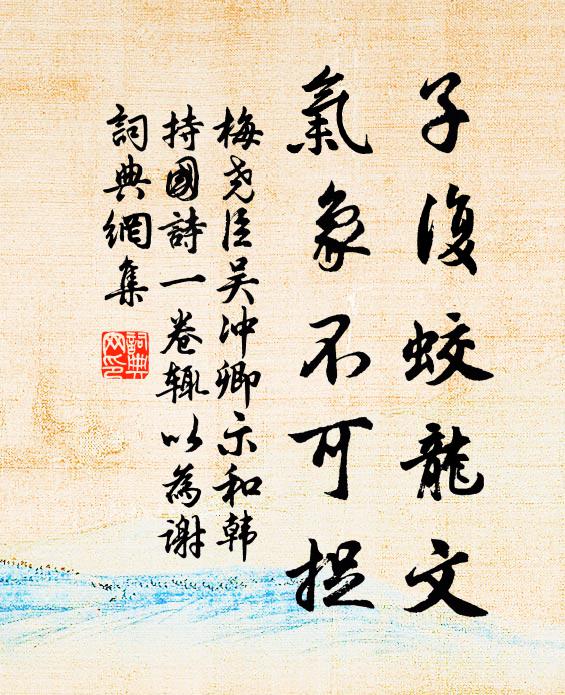 子復蛟龍文
氣象不可捉
梅堯臣吴冲卿示和韩
持國詩一卷辄以為谢
詞典網集
詞典
网印